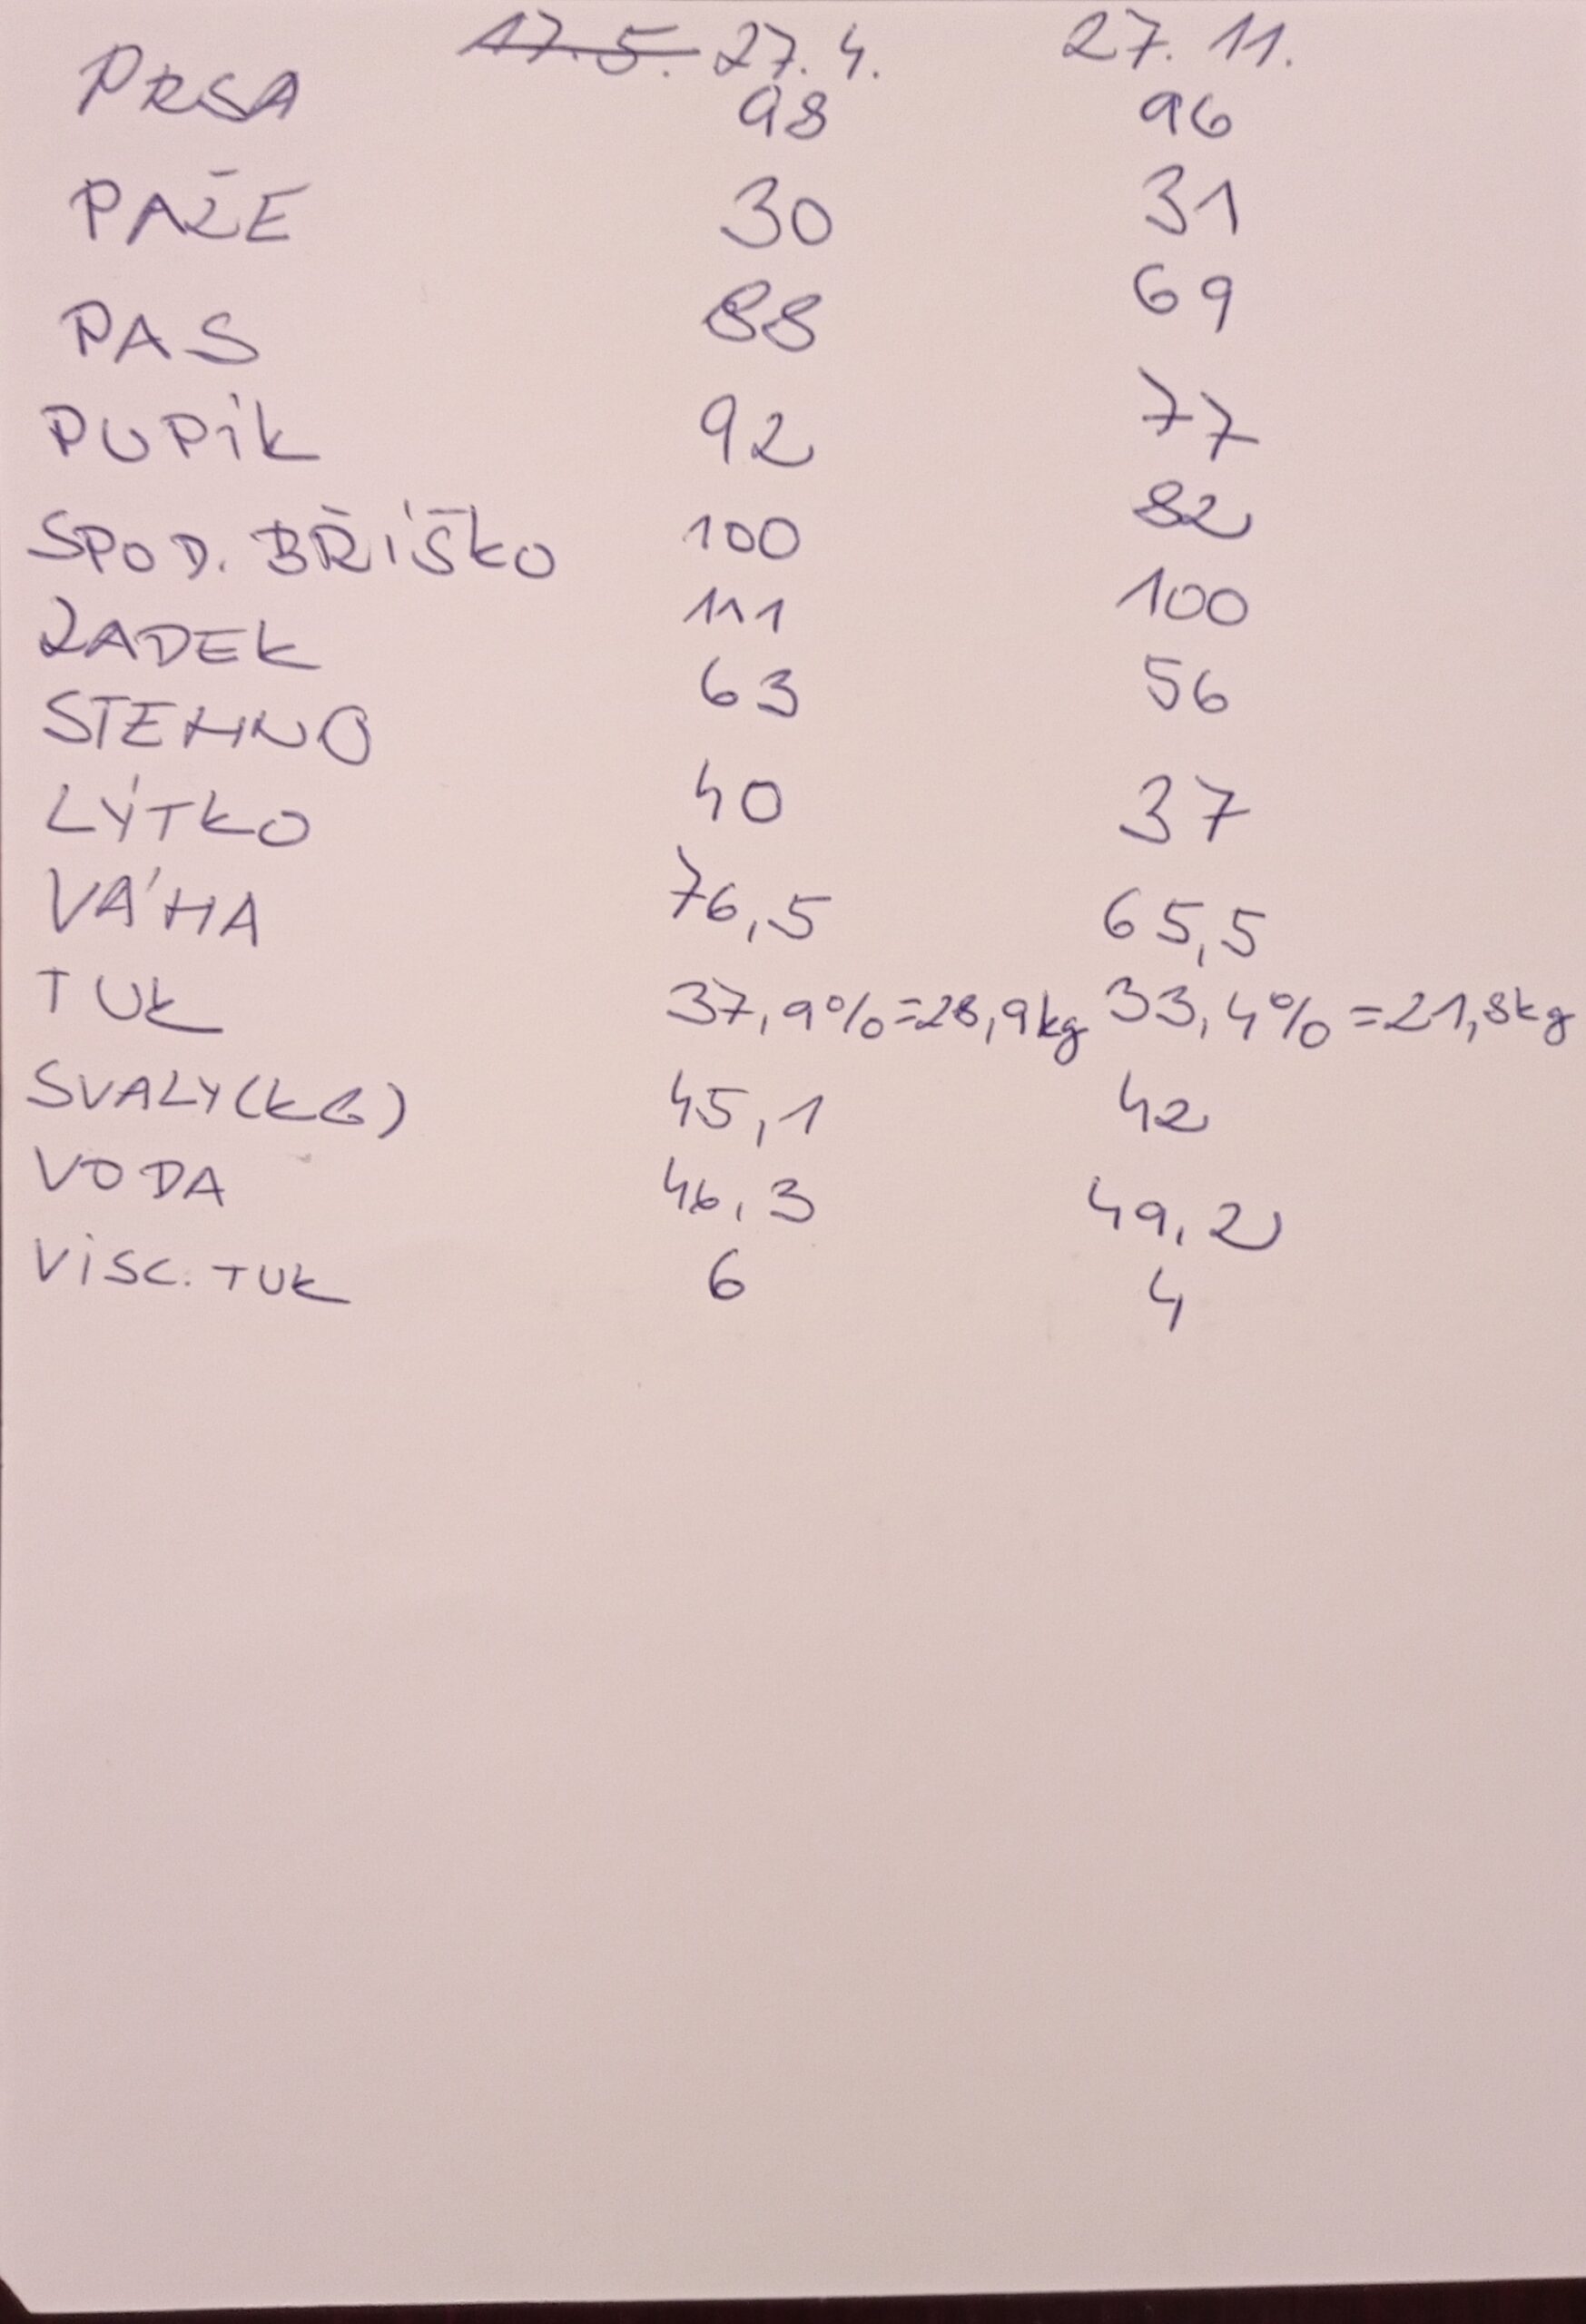 17.5. 27.4. 27.11.
PRSA 98 96
PAŽE 30 31
PAS 88 69
PUPÍK 92 77
SPOD. BŘÍŠKO 100 82
ZADEK 111 100
STEHNO 63 56
LÝTKO 40 37
VÁHA 76,5 65,5
TUK 37,9%=28,9kg 33,4%=21,8kg
SVALY(KG) 45,1 42
VODA 46,3 49,2
VISC. TUK 6 4